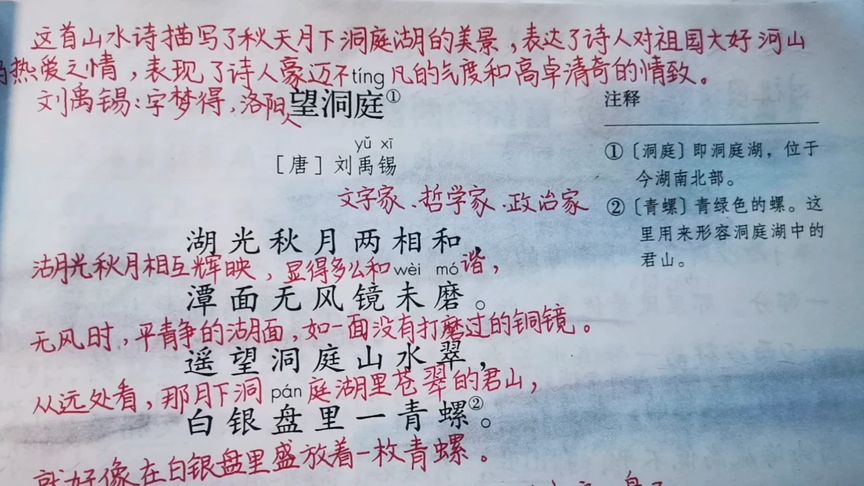 这首山水诗描写了秋天月下洞庭湖的美景，表达了诗人对祖国大好河山
的热爱之情，表现了诗人豪迈不凡的气度和高卓清奇的情致。
tíng
刘禹锡：字梦得，洛阳人
望洞庭①
yǔ xī
[唐] 刘禹锡
文字家、哲学家、政治家
湖光秋月两相和，
湖光秋月相互辉映，显得多么和谐，
wèi mó
潭面无风镜未磨。
无风时，平静的湖面，如一面没有打磨过的铜镜。
遥望洞庭山水翠，
从远处看，那月下洞庭湖里苍翠的君山，
pán
白银盘里一青螺②。
就好像在白银盘里盛放着一枚青螺。
注释
①〔洞庭〕即洞庭湖，位于
今湖南北部。
②〔青螺〕青绿色的螺。这
里用来形容洞庭湖中的
君山。